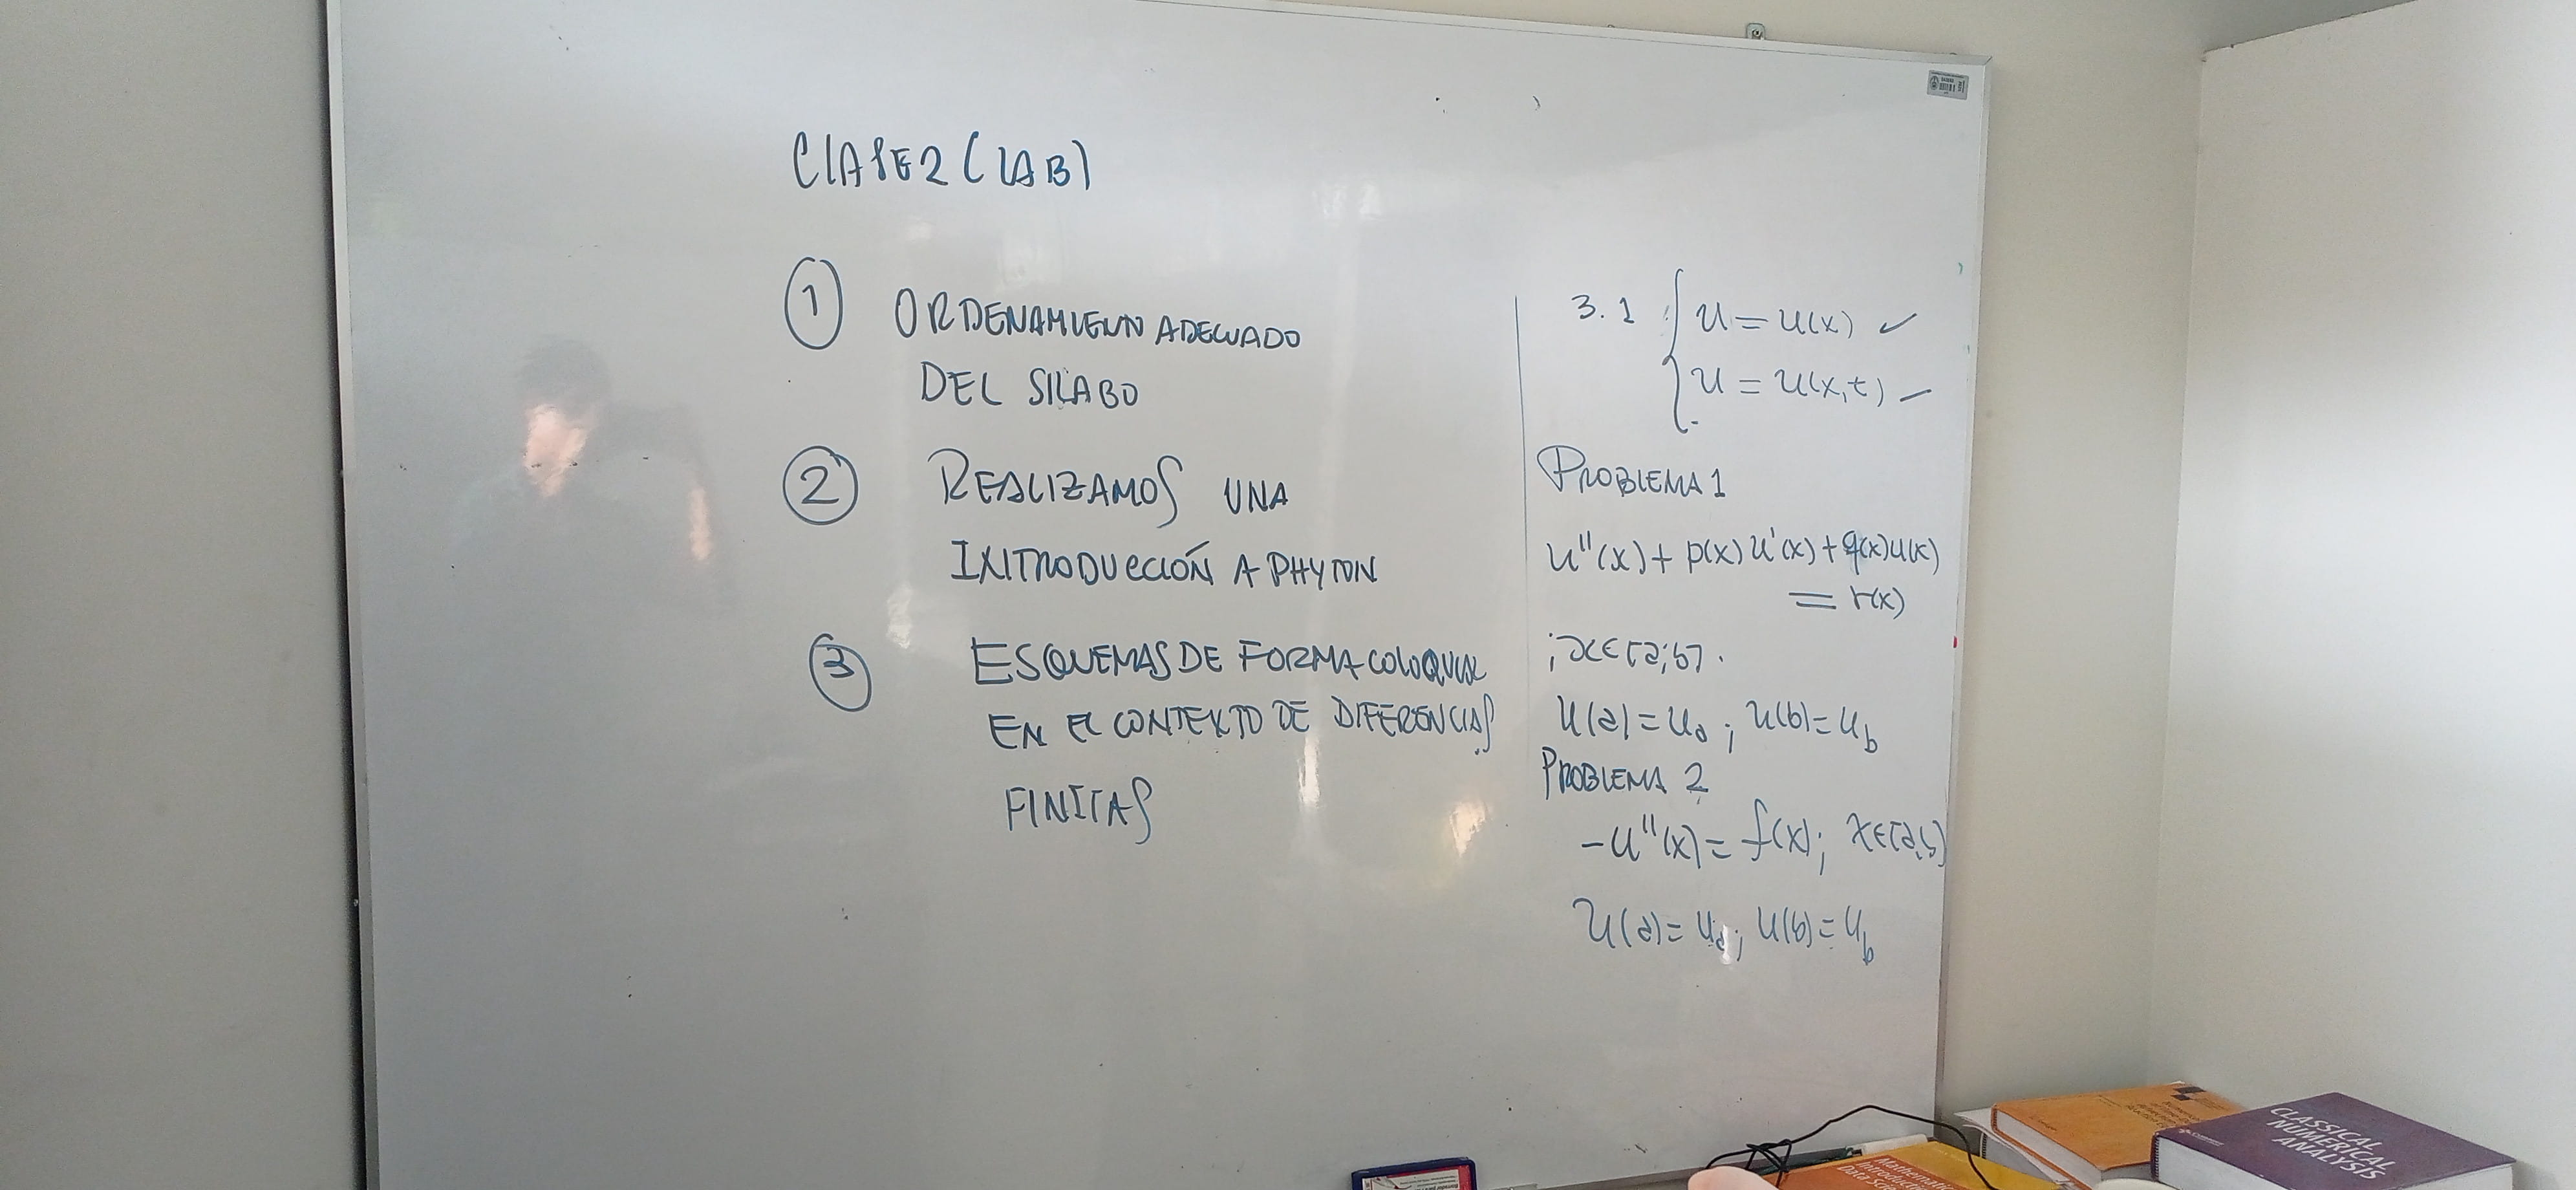 CLASE 2 (LAB)
1 ORDENAMIENTO ADECUADO
DEL SILABO
2 REALIZAMOS UNA
INTRODUCCIÓN A PHYTON
3 ESQUEMAS DE FORMA COLOQUIAL
EN EL CONTEXTO DE DIFERENCIAS
FINITAS
3.1 { u = u(x) ✓
u = u(x,t) –
PROBLEMA 1
u''(x) + p(x) u'(x) + q(x)u(x)
= r(x)
; x ∈ [a;b].
u(a) = u_a ; u(b) = u_b
PROBLEMA 2
-u''(x) = f(x); x ∈ [a,b]
u(a) = u_a; u(b) = u_b
CLASSICAL
NUMERICAL
ANALYSIS